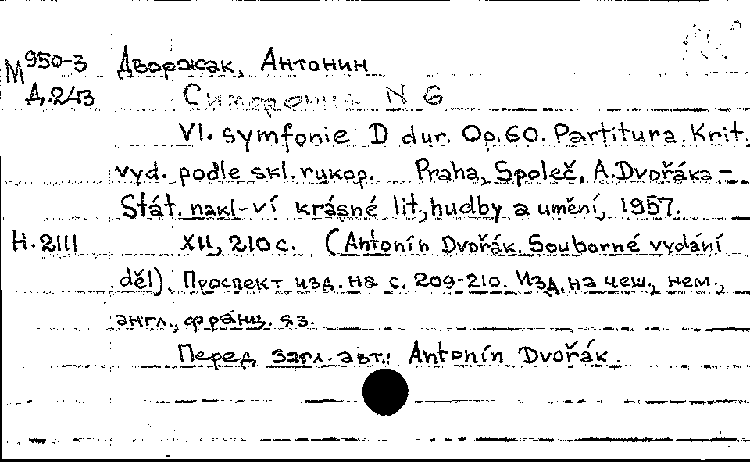 М 950-3 Дворжак, Антонин
Д.243 Симфония N 6
VI. symfonie D dur. Op.60. Partitura. Krit.
vyd. podle skl. rukop. Praha, Společ. A.Dvořáka -
Stát. nakl-ví krásné lit., hudby a umění, 1957.
Н. 2111 XII, 210 с. (Antonín Dvořák. Souborné vydání
děl). Проспект изд. на с. 209-210. Изд. на чеш., нем.,
англ., франц. яз.
Перед загл. авт.: Antonín Dvořák.